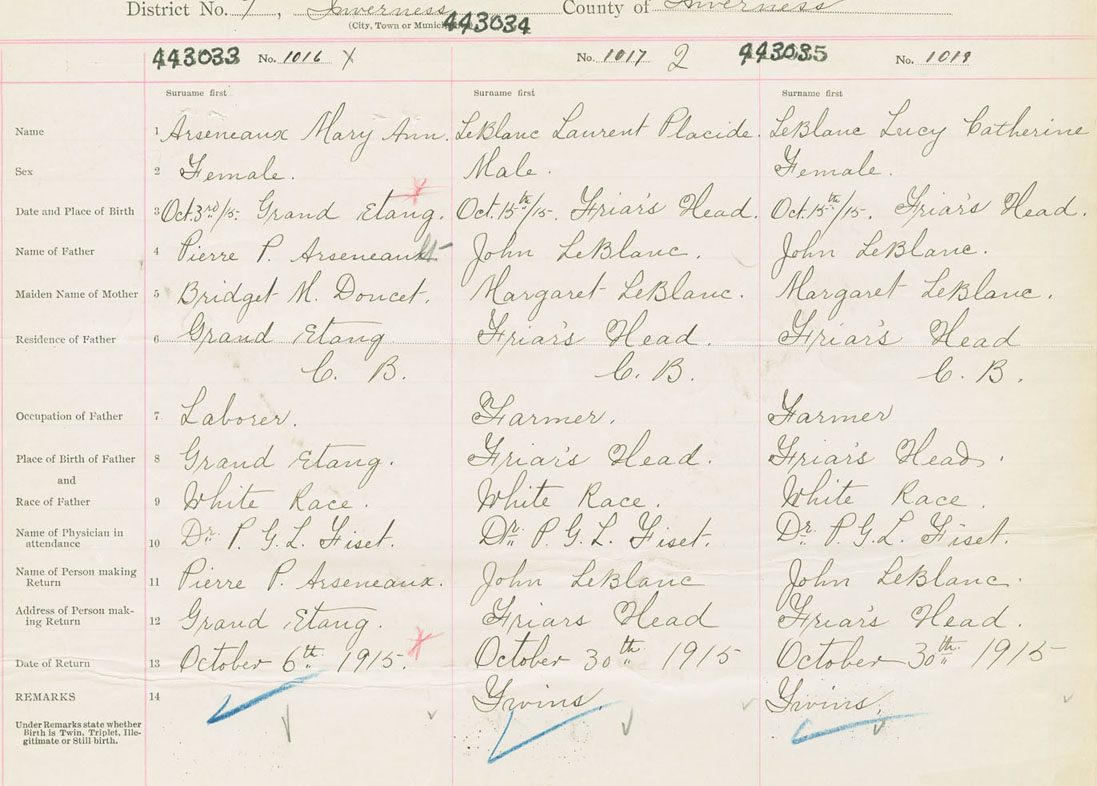 District No. 7, Inverness County of Inverness
(City, Town or Munic
443034
443033 No. 1016 X No. 1017 2 443035 No. 1019
Surname first Surname first Surname first
Name 1 Arseneaux Mary Ann. LeBlanc Laurent Placide. LeBlanc Lucy Catherine
Sex 2 Female. Male. Female.
Date and Place of Birth 3 Oct. 3rd/15- Grand Etang. Oct. 15th/15-. Friar's Head. Oct. 15th/15-. Friar's Head.
Name of Father 4 Pierre P. Arseneault John LeBlanc. John LeBlanc.
Maiden Name of Mother 5 Bridget M. Doucet. Margaret LeBlanc. Margaret LeBlanc.
Residence of Father 6 Grand Etang Friar's Head. Friar's Head
C. B. C. B. C. B.
Occupation of Father 7 Laborer. Farmer. Farmer
Place of Birth of Father 8 Grand Etang. Friar's Head. Friar's Head.
and
Race of Father 9 White Race. White Race. White Race.
Name of Physician in
attendance 10 Dr. P. G. L. Fiset. Dr. P. G. L. Fiset. Dr. P. G. L. Fiset.
Name of Person making
Return 11 Pierre P. Arseneaux. John LeBlanc John LeBlanc.
Address of Person mak-
ing Return 12 Grand Etang. Friars Head Friar's Head.
Date of Return 13 October 6th 1915. October 30th 1915 October 30th 1915
REMARKS 14 Twins. Twins.
Under Remarks state whether
Birth is Twin, Triplet, Ille-
gitimate or Still birth.